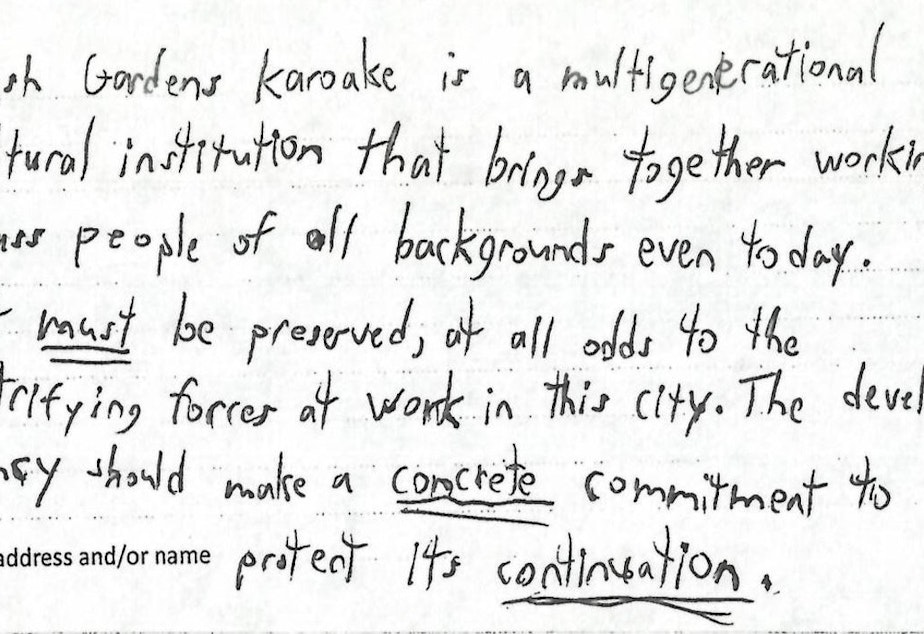 sh Gardens Karoake is a multigenerational
tural institution that brings together workin
ass people of all backgrounds even today.
must be preserved, at all odds to the
trifying forces at work in this city. The devel
ncy should make a concrete commitment to
address and/or name protect its continuation.